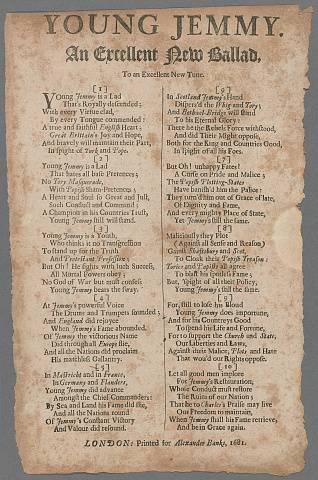 YOUNG JEMMY.
An Excellent New Ballad,
To an Excellent New Tune.
[1]
Young Jemmy is a Lad
That's Royally descended;
With every Virtue clad,
By every Tongue commended:
A true and faithful English Heart;
Great Brittain's Joy and Hope,
And bravely will maintain their Part,
In spight of Turk and Pope.
[2]
Young Jemmy is a Lad
That hates all base Pretences;
No Masquerade,
With Popish Sham-Pretences;
A Heart and Soul so Great and Just,
Such Conduct and Command;
A Champion in his Countries Trust,
Young Jemmy still will stand.
[3]
Young Jemmy is a Youth,
Who thinks it no Transgression
To stand up for the Truth
And Protestant Profession:
But Oh! He fights with such Success,
All Mortal Powers obey;
No God of War but must confess
Young Jemmy bears the sway.
[4]
At Jemmy's powerful Voice
The Drums and Trumpets sounded;
And England did rejoyce
When Jemmy's Fame abounded.
Of Jemmy the victorious Name
Did through all Europe flie,
And all the Nations did proclaim
His matchless Gallantry.
[5]
In Mastricht and in France,
in Germany and Flanders,
Young Jemmy did advance
Amongst the Chief Commanders:
By Sea and Land his Fame did flie,
And all the Nations round
Of Jemmy's Constant Victory
And Valour did resound.
[6]
In Scotland Jemmy's Hand
Dispers'd the Whig and Tory;
And Bothwel-Bridge will stand
To his Eternal Glory:
There he the Rebels Force withstood,
And did Their Might oppose,
Both for the King and Countries Good,
In spight of all his Foes.
[7]
But Oh! unhappy Fate!
A Curse on Pride and Malice;
The Popish Plotting-States
Have banish'd him the Palice:
They turn'd him out of Grace of late,
Of Dignity and Fame,
And every mighty Place of State,
Yet Jemmy still the same.
[8]
Maliciously they Plot
(Against all Sense and Reason)
Shaftsbury and Scot,
To Cloak their Popish Treason:
Tories and Papists all agree
To blast his spotless Fame;
But, spight of all their Policy,
Young Jemmy's still the same.
[9]
For, still to lose his Blood
Young Jemmy does importune,
And for his Countreys Good
To spend his Life and Fortune,
For to support the Church and State,
Our Liberties and Laws,
Against their Malice, Plots and Hate
That wou'd our Rights oppose.
[10]
Let all good men implore
For Jemmy's Restauration,
Whose Conduct must restore
The Ruins of our Nation;
That he to Charles's Praise may live
Our Freedom to maintain,
When Jemmy shall his Fame retrieve,
And be in Grace again.
LONDON: Printed for Alexander Banks, 1681.